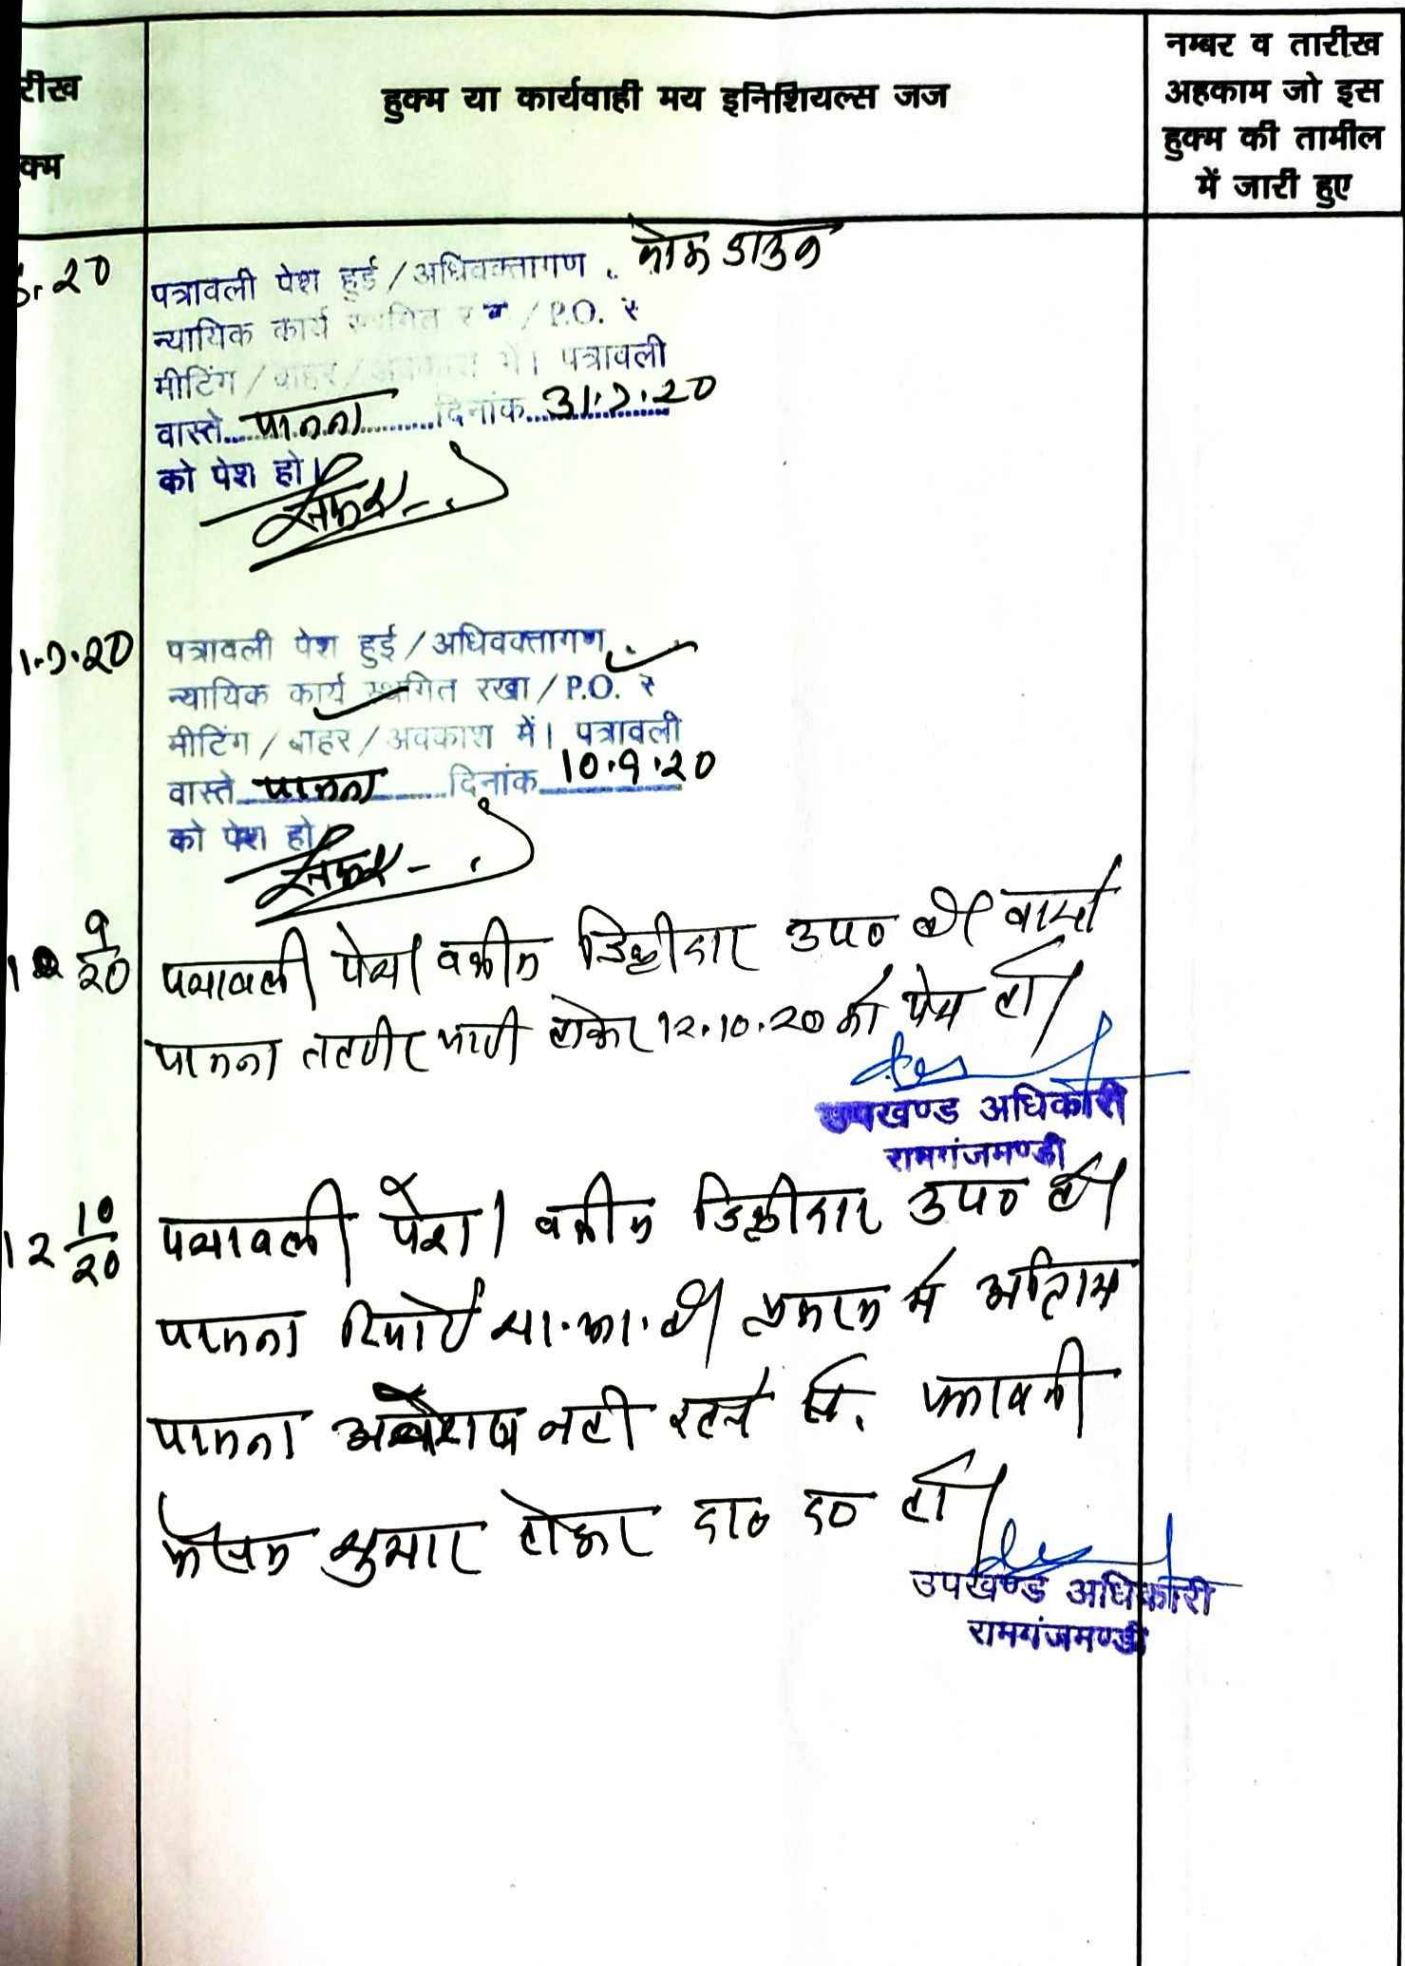 रीख
क्म
हुक्म या कार्यवाही मय इनिशियल्स जज
नम्बर व तारीख
अहकाम जो इस
हुक्म की तामील
में जारी हुए
20 पत्रावली पेश हुई / अधिवक्तागण
न्यायिक कार्य स्थगित / P.O.
मीटिंग / बाहर / अवकाश में। पत्रावली
वास्ते पालना दिनांक 31.7.20
को पेश हो।
1.7.20 पत्रावली पेश हुई / अधिवक्तागण
न्यायिक कार्य स्थगित रखा / P.O.
मीटिंग / बाहर / अवकाश में। पत्रावली
वास्ते पालना दिनांक 10.9.20
को पेश हो।
9/20 पत्रावली पेश। वकील डिक्रीदार उप० वास्ते
पालना तहरीर जारी होकर 12.10.20 को पेश हो।
उपखण्ड अधिकारी
रामगंजमण्डी
12 10/20 पत्रावली पेश। वकील डिक्रीदार उप० है।
पालना रिपोर्ट में
पालना नही रहने से पत्रावली
फैसल शुमार होकर दा० द० हो।
उपखण्ड अधिकारी
रामगंजमण्डी